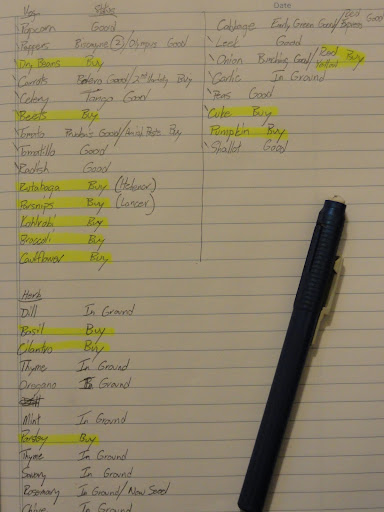 Veg Status
Popcorn Good
Peppers Good
Dry Beans Buy
Carrots Bolero Good/2nd Variety Buy
Celery Tango Good
Beets Buy
Tomato Good/ Paste Buy
Tomatillo Good
Radish Good
Rutabaga Buy (Helenor)
Parsnips Buy (Lancer)
Kohlrabi Buy
Broccoli Buy
Cauliflower Buy
Herb
Dill In Ground
Basil Buy
Cilantro Buy
Thyme In Ground
Oregano In Ground
Mint In Ground
Parsley Buy
Thyme In Ground
Savory In Ground
Rosemary In Ground/New Seed
Chive In Ground
Date
Cabbage Early Green Good/Red Express Good
Leek Good
Onion Bunching Good/Red Yellow Buy
Garlic In Ground
Peas Good
Cukes Buy
Pumpkin Buy
Shallot Good